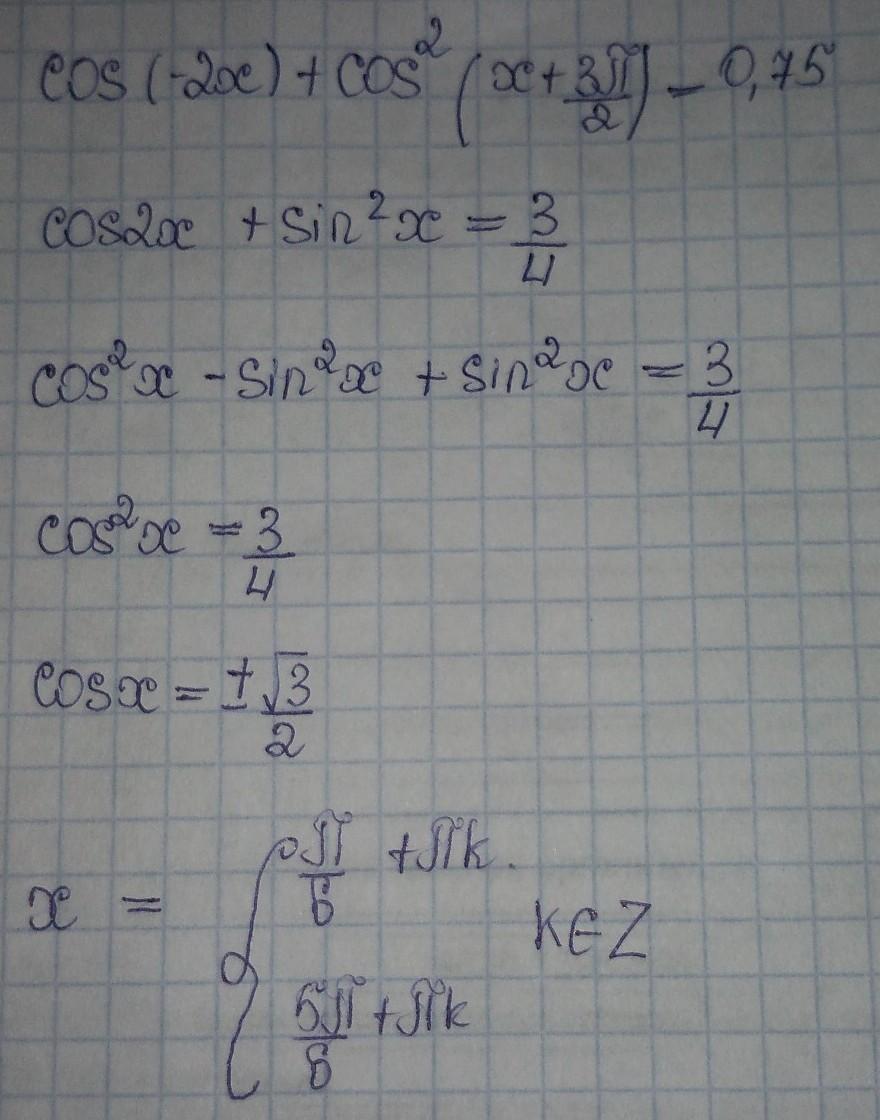 cos(-2x) + cos²(x + 3π/2) - 0,75
cos2x + sin²x = 3/4
cos²x - sin²x + sin²x = 3/4
cos²x = 3/4
cosx = ±√3/2
x = { π/6 + πk. 5π/6 + πk k∈Z